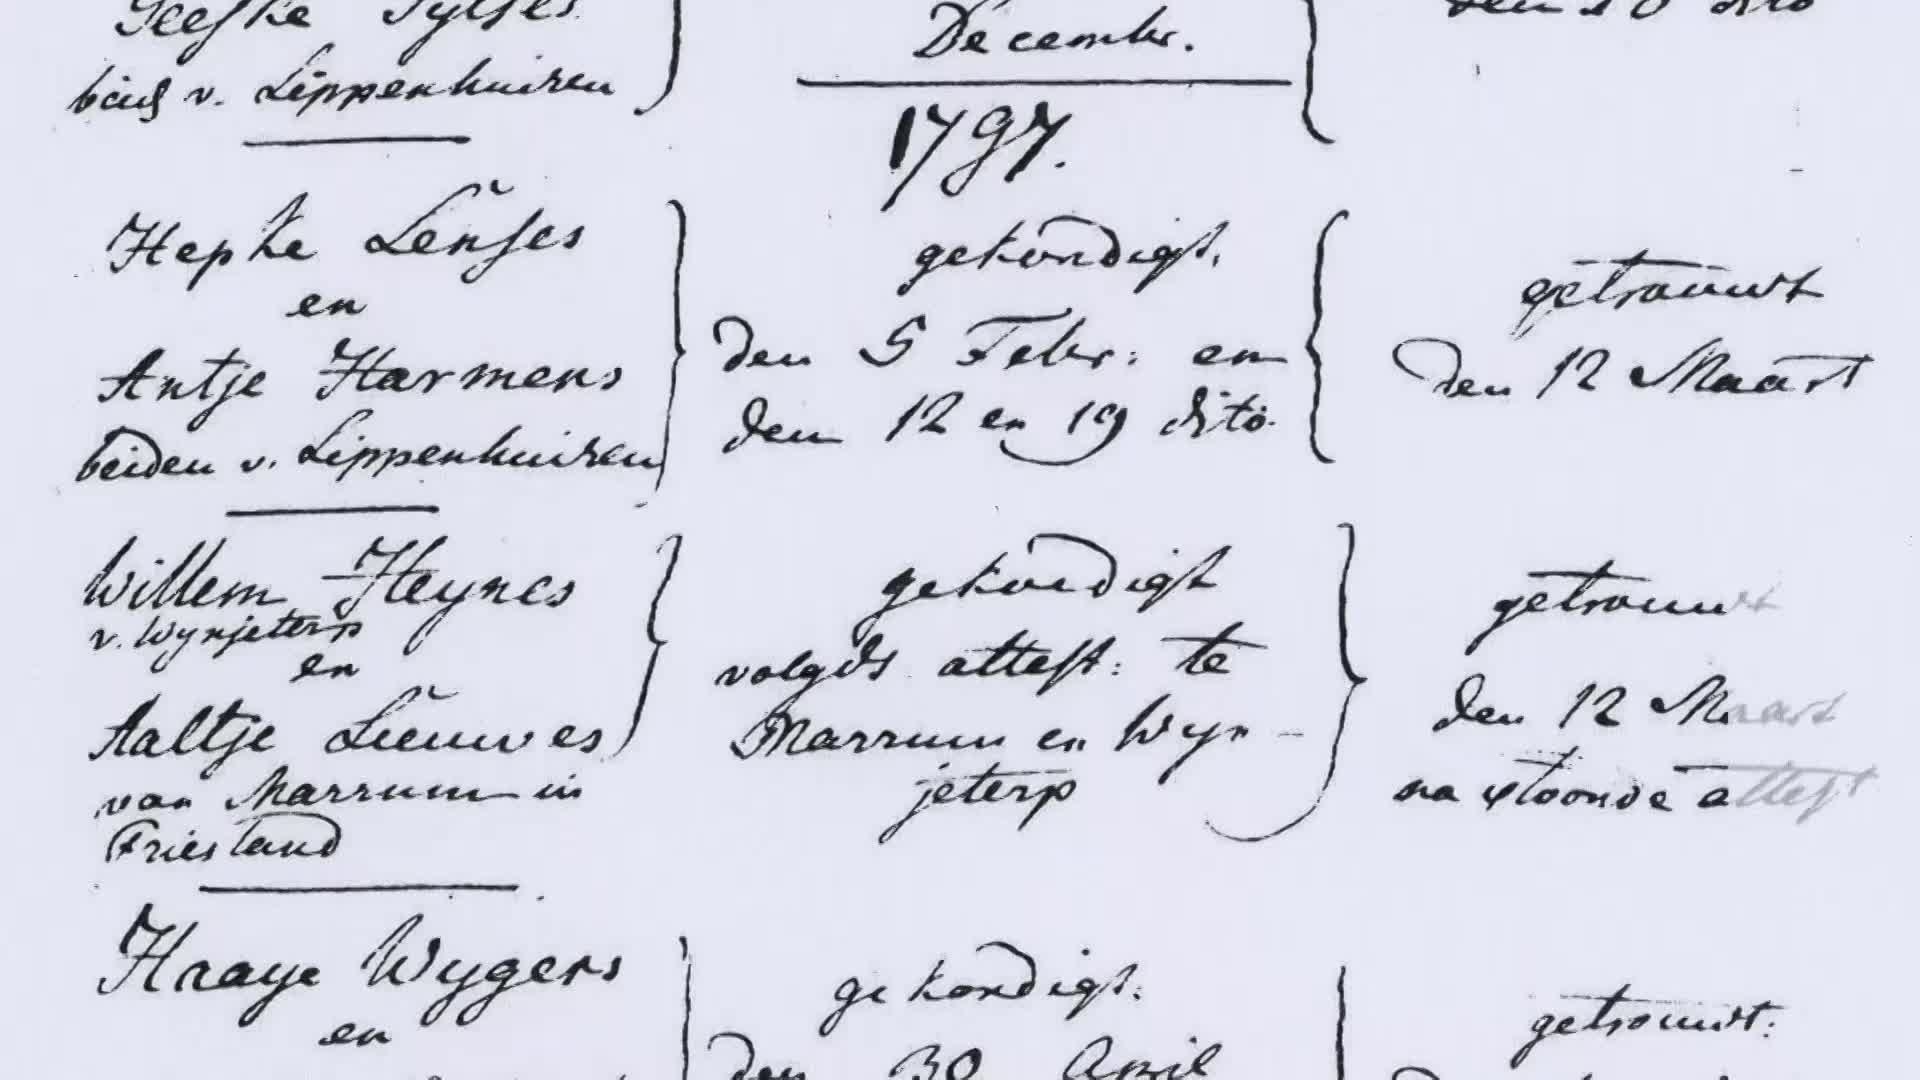 Decembr.
beids v. Lippenhuisen
1797.
Hepke Lenses
en
Antje Harmens
beiden v. Lippenhuisen
gekondigt.
den 5 Febr: en
den 12 en 19 dito.
getrouwt
den 12 Maart
Willem Heynes
v. Wynjeterp
en
Aaltje Lieuwes
van Marrum in
Friesland
gekondigt
volgds attest: te
Marrum en Wyn-
jeterp
getrouwt
den 12 Maart
na attest
Haaye Wygers
en
gekondigt:
den 30 April
getrouwt: